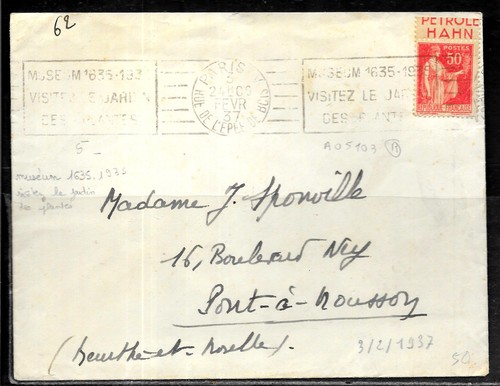 62
PETROLE
HAHN
POSTES
50c
MUSEUM 1635-193
VISITEZ LE JARDIN
DES PLANTES
PARIS V
3
FEVR
37
RUE DE L'EPEE DE BOIS
MUSEUM 1635-193
VISITEZ LE JAR
DES PLANT
5
A05103 B
muséum 1635.193
visitez le jardin
des plantes
Madame J. Sponville
16, Boulevard Ney
Pont-à-Mousson
(Meurthe-et-Moselle).
3/2/1937
50